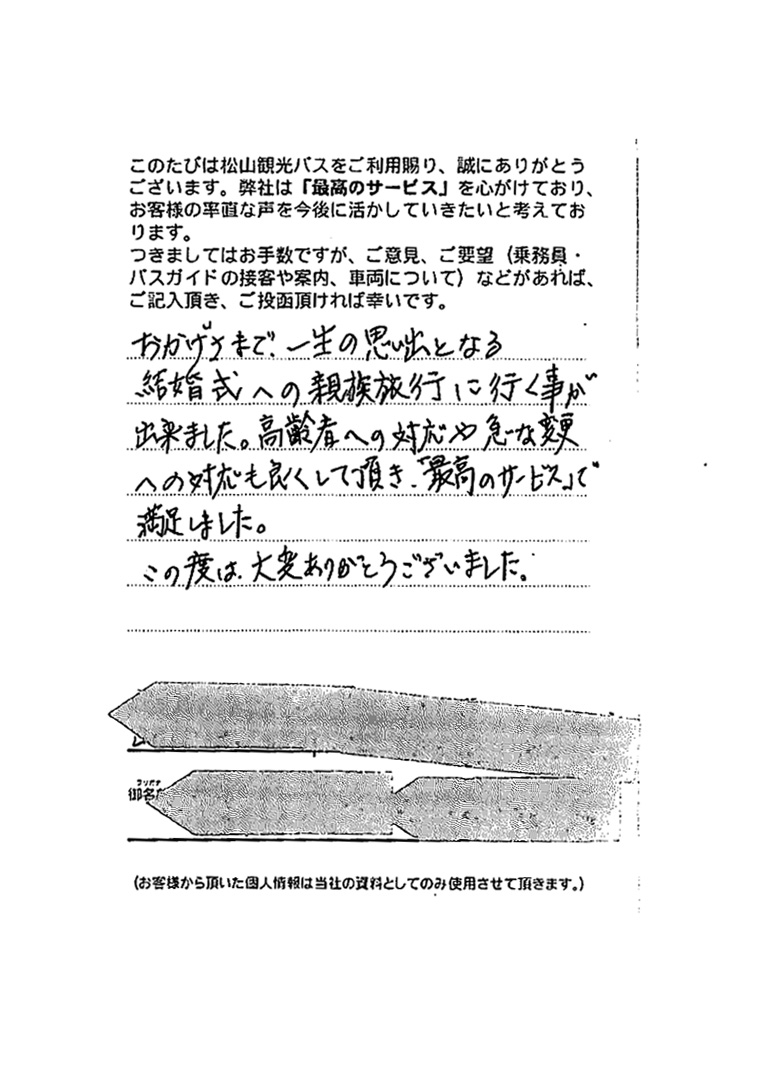 このたびは松山観光バスをご利用賜り、誠にありがとう
ございます。弊社は「最高のサービス」を心がけており、
お客様の率直な声を今後に活かしていきたいと考えてお
ります。
つきましてはお手数ですが、ご意見、ご要望（乗務員・
バスガイドの接客や案内、車両について）などがあれば、
ご記入頂き、ご投函頂ければ幸いです。
おかげさまで、一生の思い出となる
結婚式への親族旅行に行く事が
出来ました。高齢者への対応や急な変更
への対応も良くして頂き、「最高のサービス」で
満足しました。
この度は、大変ありがとうございました。
フリガナ
御名
（お客様から頂いた個人情報は当社の資料としてのみ使用させて頂きます。）